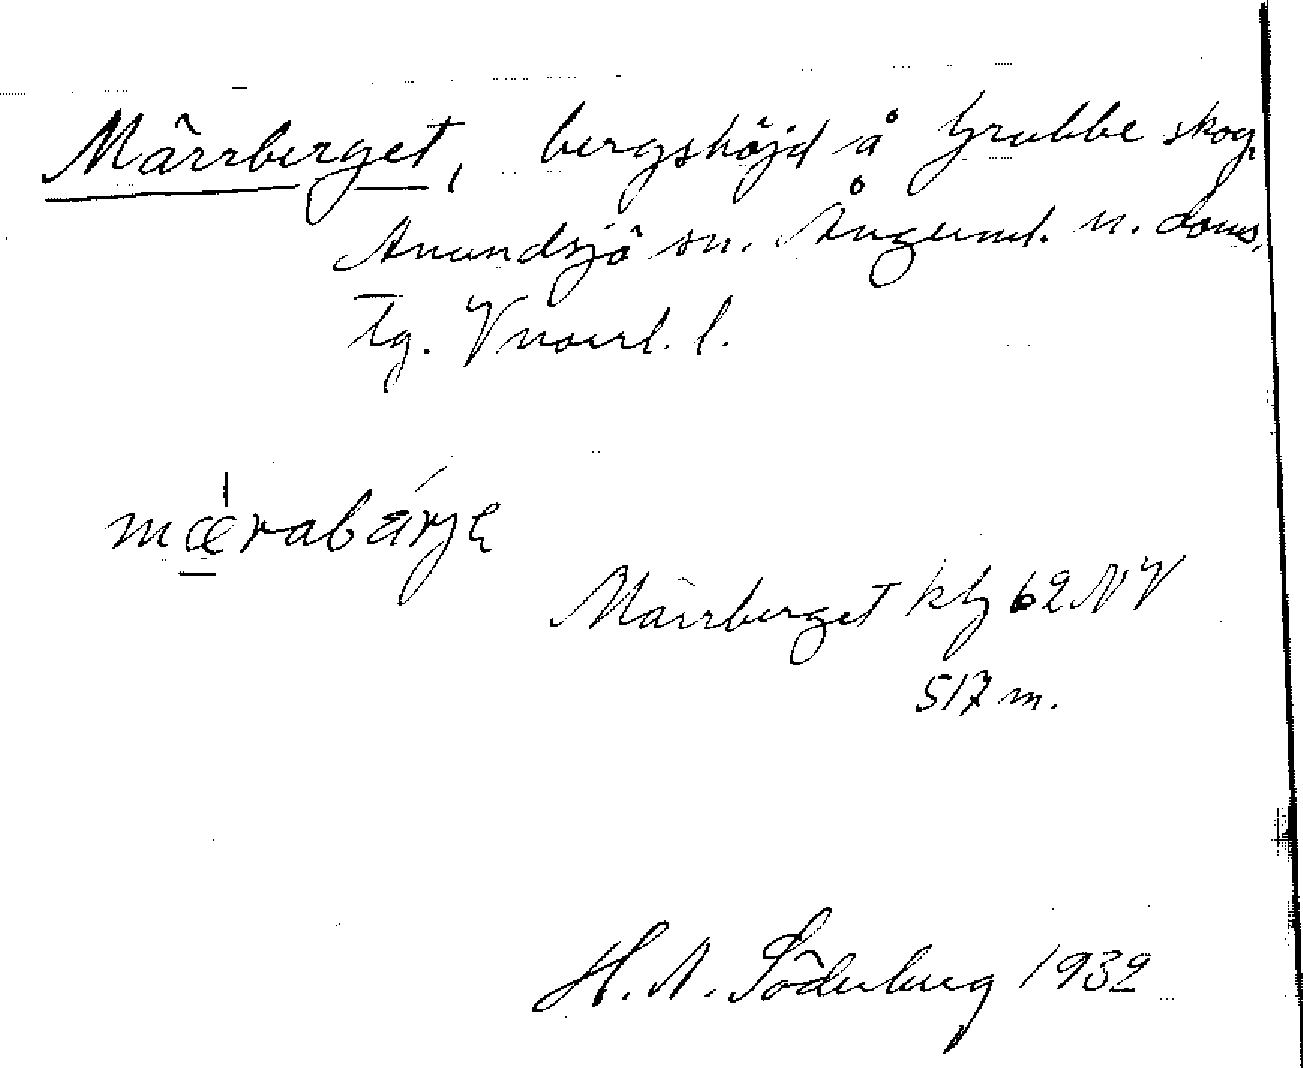 Märrberget, bergshöjd å Grubbe skog,
Anundsjö sn. Ångerml. n. doms.
tg. Vnorrl. l.
mærabárje
Märrberget kbl 62 NV
517 m.
H. A. Söderberg 1932